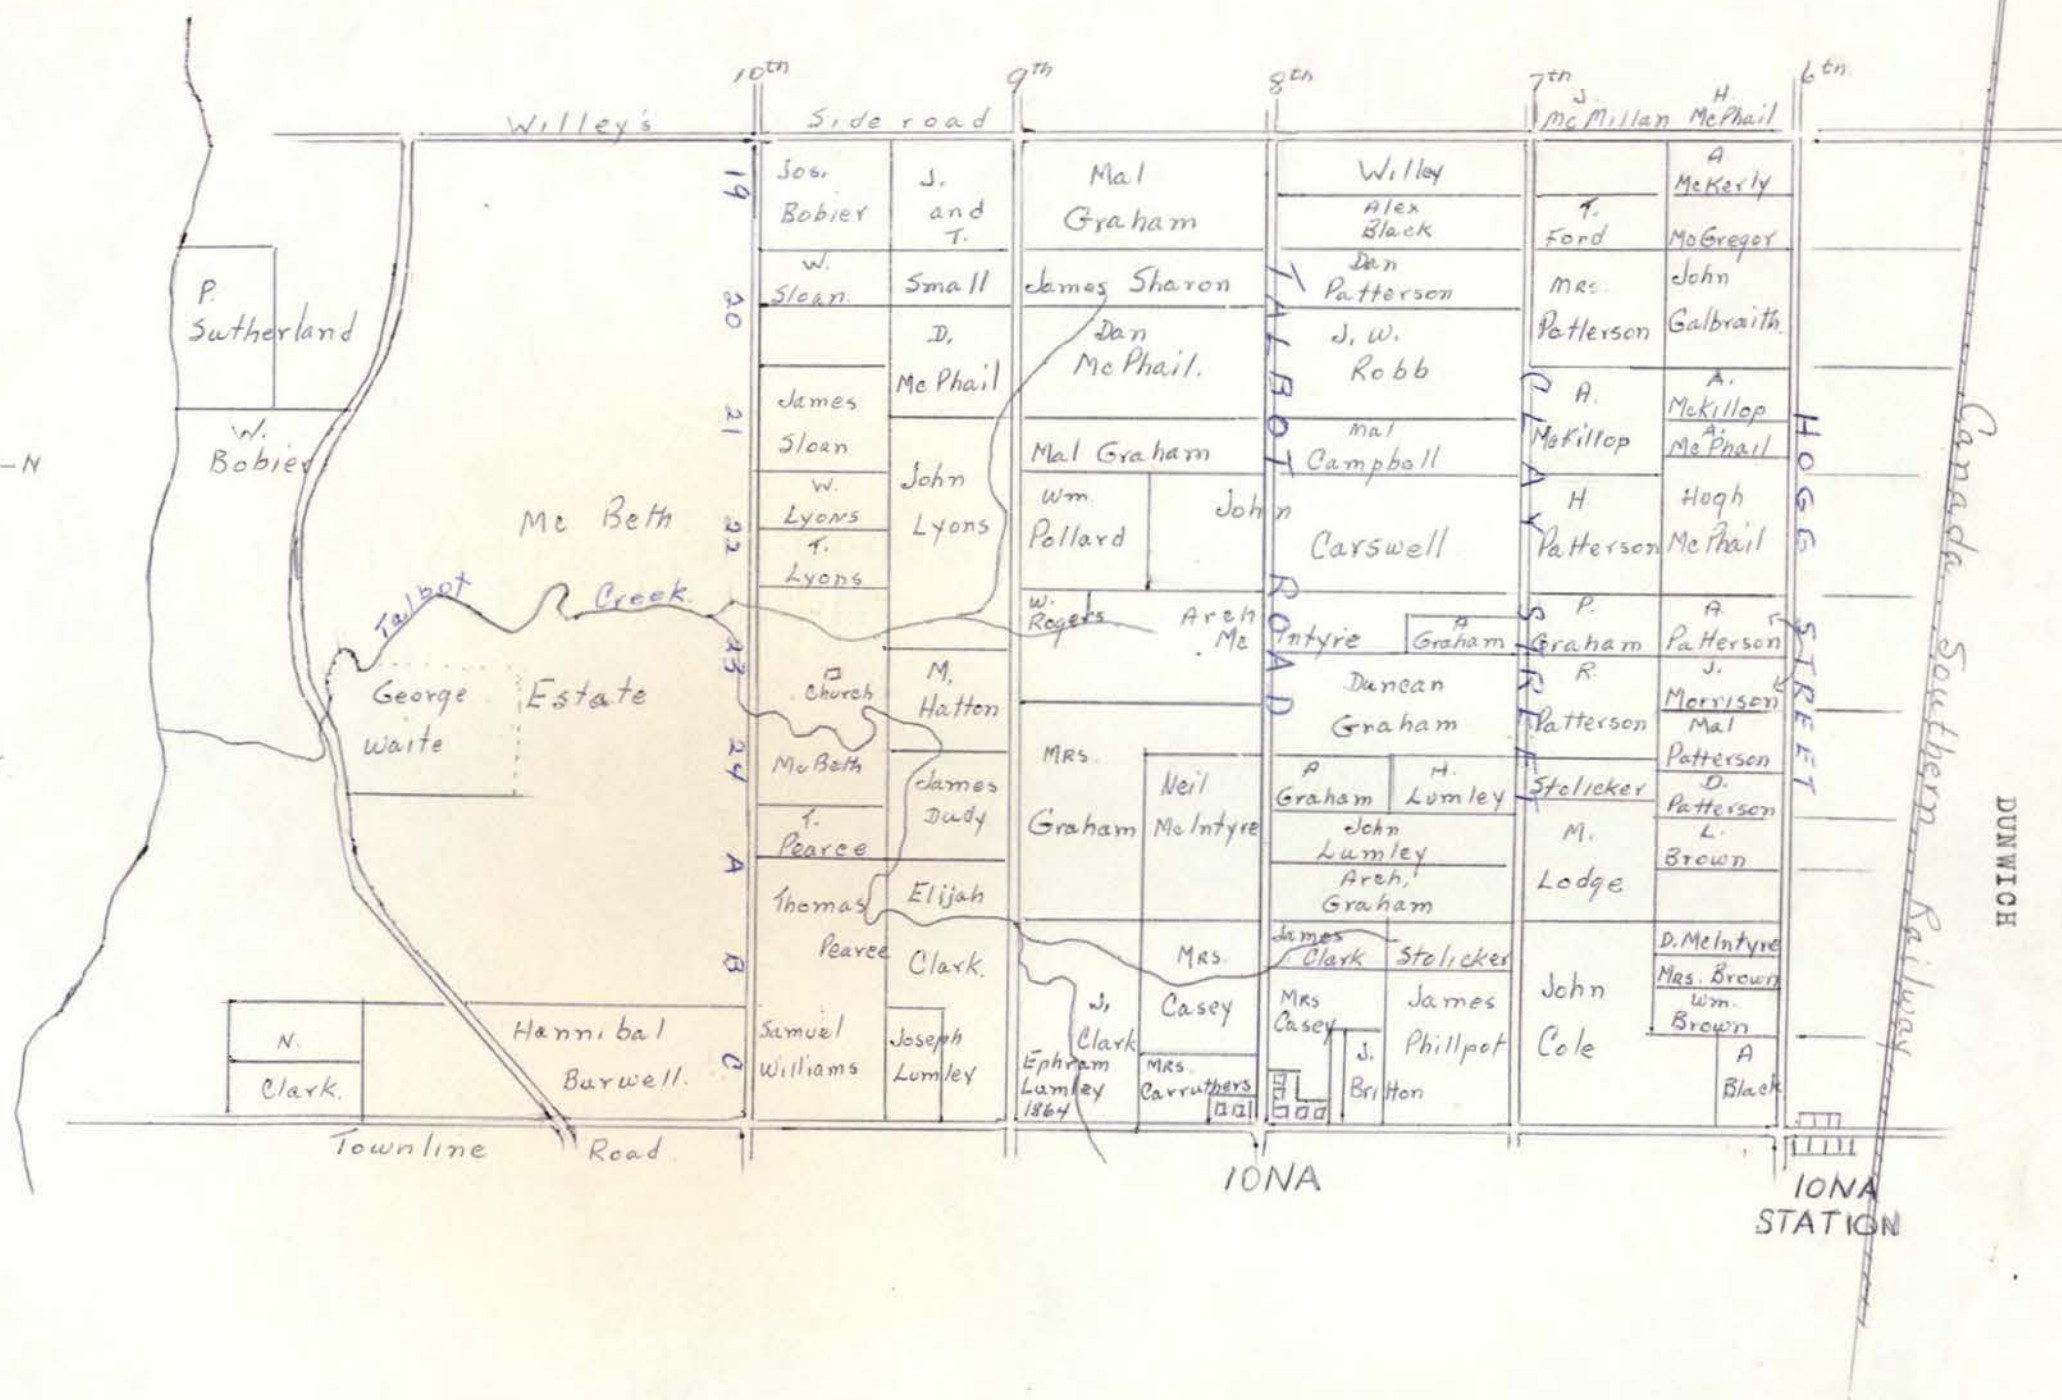 10th
9th
8th
7th
6th
Willey's
Side road
J.
McMillan
H.
McPhail
P.
Sutherland
W.
Bobier
-N
Mc Beth
Estate
Talbot
Creek.
George
Waite
N.
Clark.
Hannibal
Burwell.
Townline
Road
19
20
21
22
23
24
A
B
C
Jos.
Bobier
W.
Sloan.
James
Sloan
W.
Lyons
T.
Lyons
Church
McBeth
T.
Pearce
Thomas
Pearce
Samuel
Williams
J.
and
T.
Small
D.
McPhail
John
Lyons
M.
Hatton
James
Dudy
Elijah
Clark.
Joseph
Lumley
Mal
Graham
James Sharon
Dan
McPhail.
Mal Graham
Wm.
Pollard
John
Carswell
W.
Rogers
Arch
Mc
Intyre
MRS.
Graham
Neil
McIntyre
MRS.
Casey
J.
Clark
Ephram
Lumley
1864
MRS.
Carruthers
TALBOT ROAD
Willey
Alex
Black
Dan
Patterson
J. W.
Robb
Mal
Campbell
A
Graham
Duncan
Graham
P
Graham
H.
Lumley
John
Lumley
Arch.
Graham
James
Clark
Stolicker
MRS
Casey
J.
Britton
James
Phillpot
CLAY STREET
T.
Ford
MRS.
Patterson
A.
McKillop
H
Patterson
P.
Graham
R.
Patterson
Stolicker
M.
Lodge
John
Cole
A
McKerly
McGregor
John
Galbraith.
A.
McKillop
A.
McPhail
Hugh
McPhail
A.
Patterson
J.
Morrison
Mal
Patterson
D.
Patterson
L.
Brown
D. McIntyre
MRS. Brown
Wm.
Brown
A
Black
HOGG STREET
Canada Southern Railway
DUNWICH
IONA
IONA
STATION